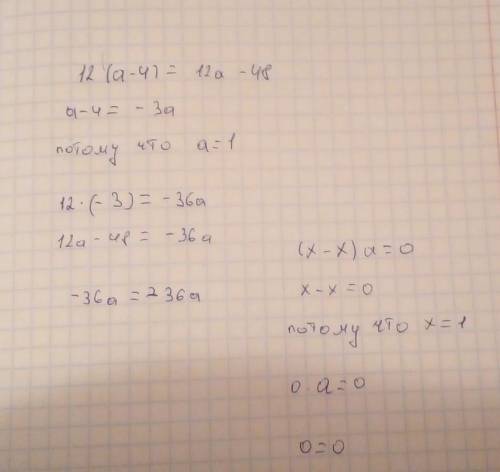 12 (a-4) = 12a - 48
a-4 = - 3a
потому что a=1
12·(-3) = -36a
12a - 48 = -36a
-36a = -36a
(x-x) a = 0
x-x = 0
потому что x=1
0·a=0
0=0